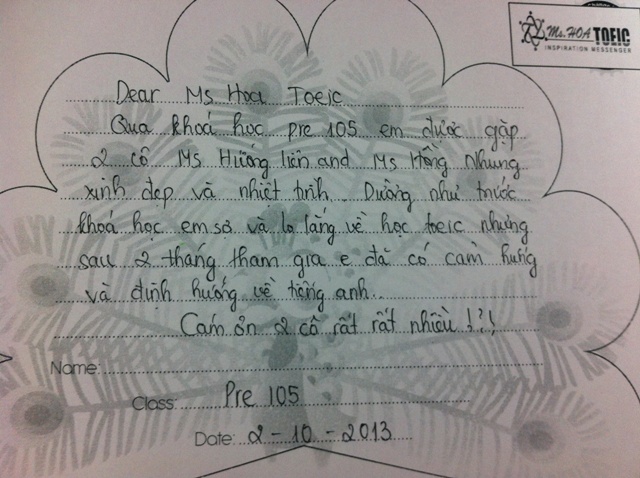 Ms. HOA TOEIC
INSPIRATION MESSENGER
Dear Ms Hoa Toeic
Qua khoá học pre 105 em được gặp
2 cô Ms Hương liên and Ms Hồng Nhung
xinh đẹp và nhiệt tình. Dường như trước
khoá học em sợ và lo lắng về học toeic nhưng
sau 2 tháng tham gia e đã có cảm hứng
và định hướng về tiếng anh..
Cảm ơn 2 cô rất rất nhiều !?!
Name:
Class: Pre 105
Date: 2 - 10 - 2013